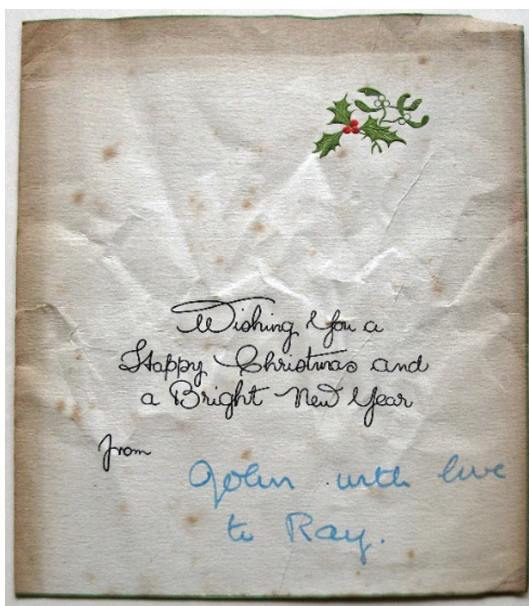 Wishing You a
Happy Christmas and
a Bright New Year
from
John with love
to Ray.